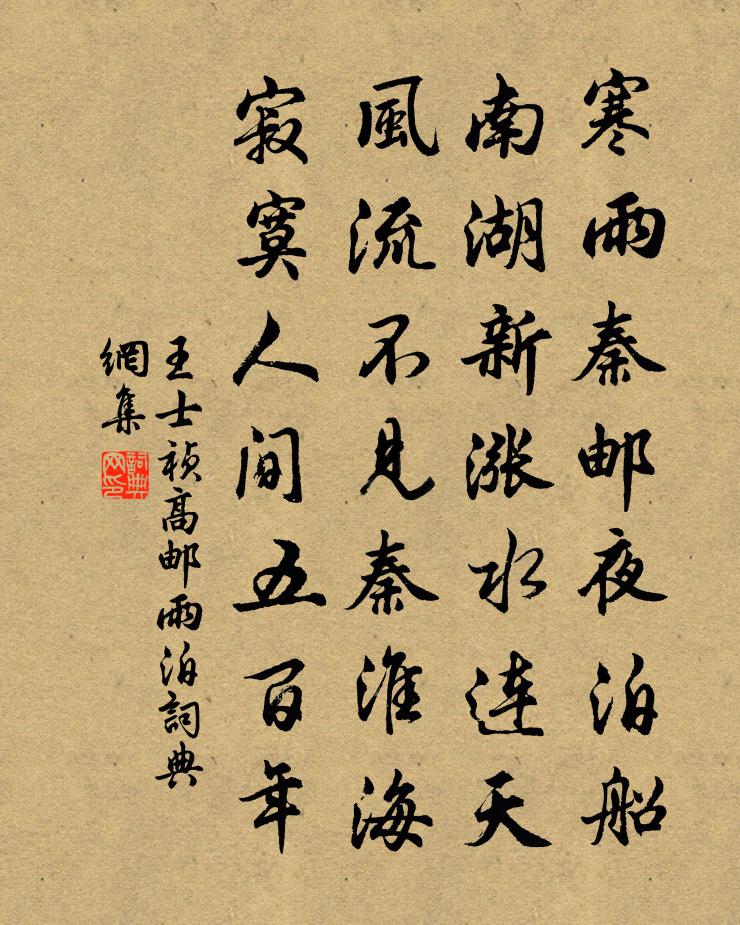 寒雨秦邮夜泊船
南湖新涨水連天
風流不見秦淮海
寂寞人间五百年
王士祯高邮雨泊詞典
網集
詞典网印